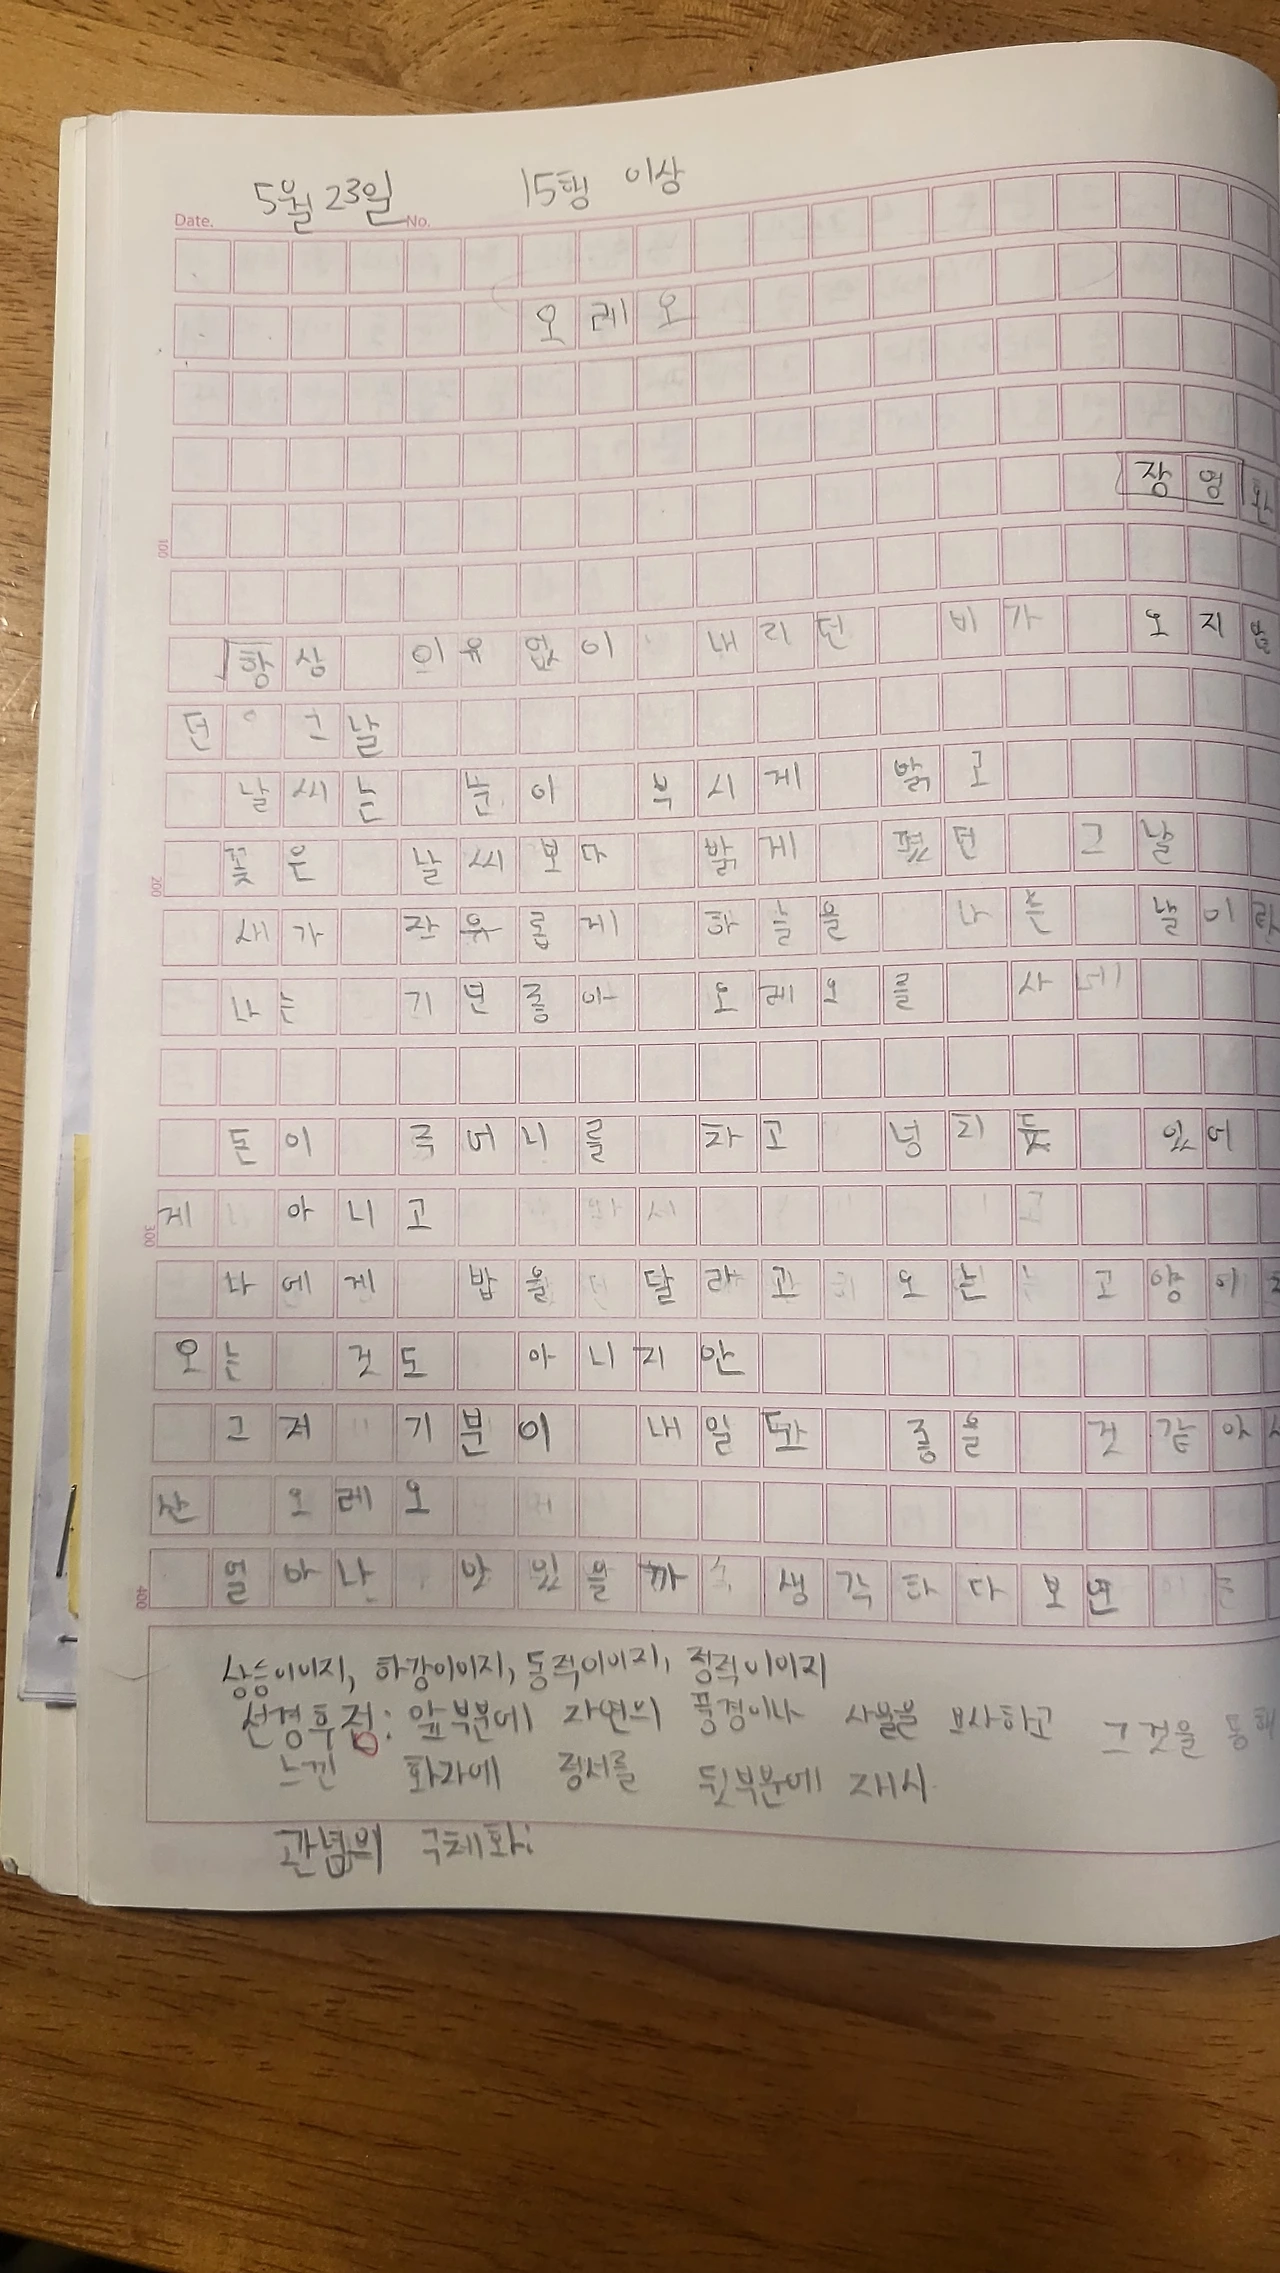 5월 23일 15행 이상
Date. No.
오레오
장영환
항상 이유 없이 내리던 비가 오지 않
던 그날
날씨는 눈이 부시게 밝고
꽃은 날씨보다 밝게 폈던 그날
새가 자유롭게 하늘을 나는 날이라
100
200
나는 기분좋아 오레오를 사네
돈이 주머니를 차고 넘치듯 있어
게 아니고
300
나에게 밥을 달라고 오는 고양이
오는 것도 아니지만
그저 기분이 내일도 좋을 것 같아
산 오레오
얼마나 맛있을까 생각하다보면
400
상승이미지, 하강이미지, 동적이미지, 정적이미지
선경후정: 앞부분에 자연의 풍경이나 사물을 묘사하고 그것을 통해
느낀 화자에 정서를 뒷부분에 제시
관념의 구체화: